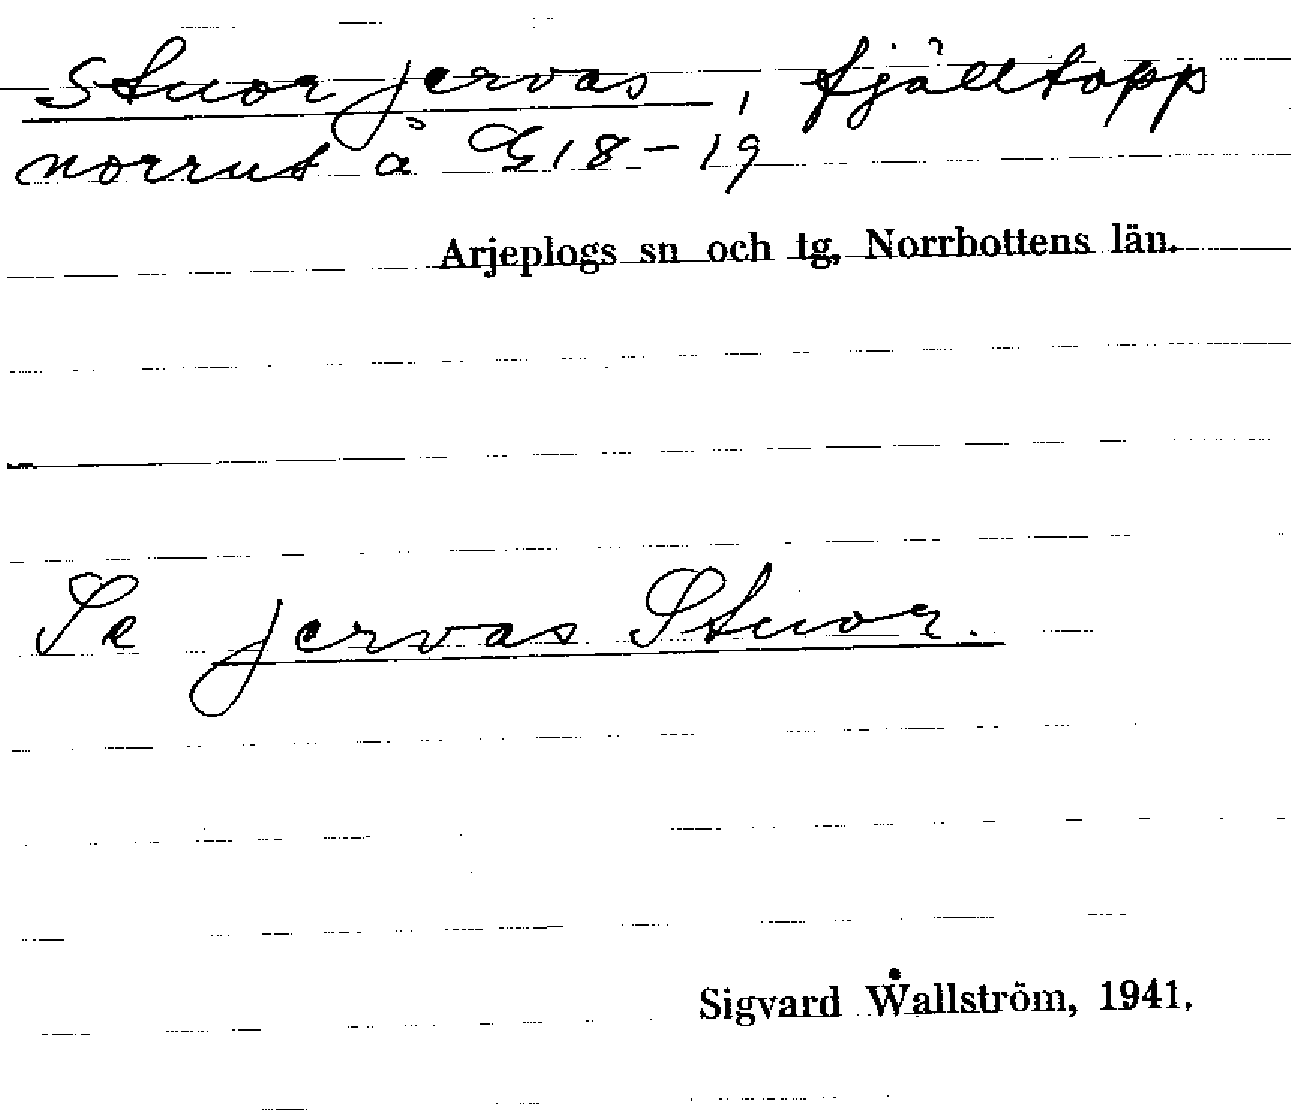 Stuorjervas, fjälltopp
norrut å G18-19
Arjeplogs sn och tg, Norrbottens län.
Se jervas Stuor.
Sigvard Wallström, 1941.